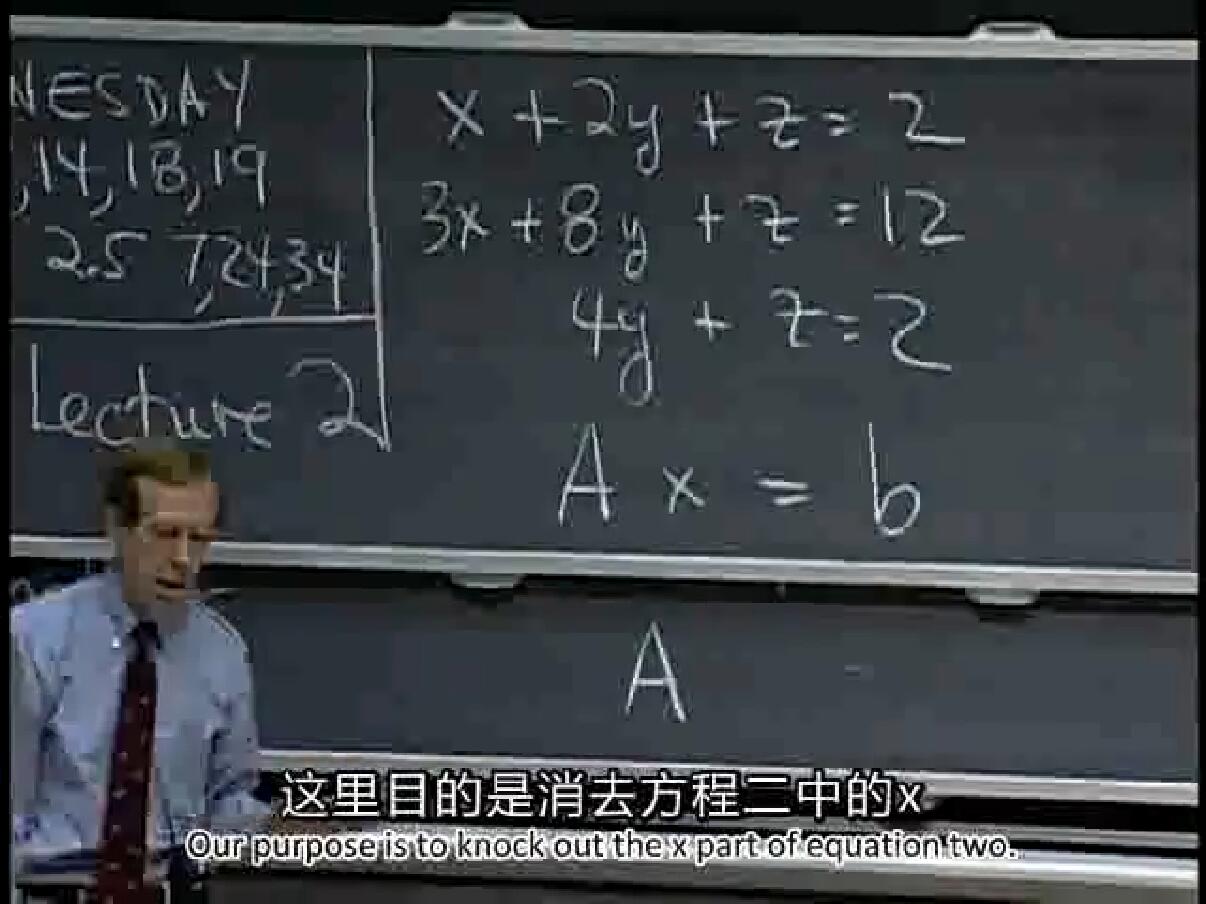 NESDAY
,14,18,19
2.5 7,24,34
Lecture 2
x + 2y + z = 2
3x + 8y + z = 12
4y + z = 2
A x = b
A
这里目的是消去方程二中的x
Our purpose is to knock out the x part of equation two.